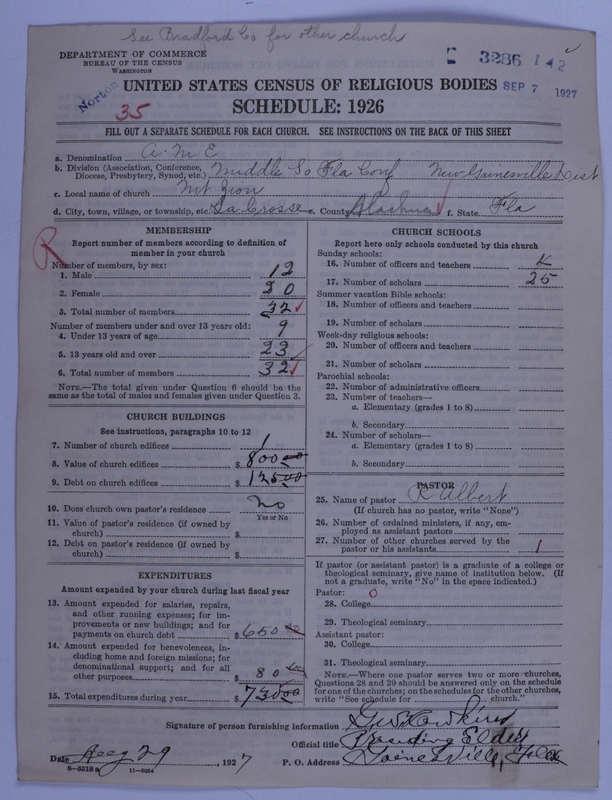 See Bradford Co for other church
DEPARTMENT OF COMMERCE
BUREAU OF THE CENSUS
WASHINGTON
3286 1 42
Norton
SEP 7 1927
UNITED STATES CENSUS OF RELIGIOUS BODIES
35
SCHEDULE: 1926
FILL OUT A SEPARATE SCHEDULE FOR EACH CHURCH. SEE INSTRUCTIONS ON THE BACK OF THIS SHEET
a. Denomination A. M. E
b. Division (Association, Conference, Diocese, Presbytery, Synod, etc.) Middle So Fla Conf New Gainesville Dist
c. Local name of church Mt Zion
d. City, town, village, or township, etc. La Crosse e. County Alachua f. State Fla
R
MEMBERSHIP
Report number of members according to definition of
member in your church
Number of members, by sex:
1. Male 12
2. Female 20
3. Total number of members 32
Number of members under and over 13 years old:
4. Under 13 years of age 9
5. 13 years old and over 23
6. Total number of members 32
NOTE.—The total given under Question 6 should be
same as the total of males and females given under Question 3.
CHURCH BUILDINGS
See instructions, paragraphs 10 to 12
7. Number of church edifices 1
8. Value of church edifices $ 800.00
9. Debt on church edifices $ 125.00
10. Does church own pastor's residence no
Yes or No
11. Value of pastor's residence (if owned by
church) $
12. Debt on pastor's residence (if owned by
church) $
EXPENDITURES
Amount expended by your church during last fiscal year
13. Amount expended for salaries, repairs,
and other running expenses; for im-
provements or new buildings; and for
payments on church debt $ 650 00
14. Amount expended for benevolences, in-
cluding home and foreign missions; for
denominational support; and for all
other purposes $ 80 00
15. Total expenditures during year $ 730.00
CHURCH SCHOOLS
Report here only schools conducted by this church
Sunday schools:
16. Number of officers and teachers 4
17. Number of scholars 25
Summer vacation Bible schools:
18. Number of officers and teachers
19. Number of scholars
Week-day religious schools:
20. Number of officers and teachers
21. Number of scholars
Parochial schools:
22. Number of administrative officers
23. Number of teachers—
a. Elementary (grades 1 to 8)
b. Secondary
24. Number of scholars—
a. Elementary (grades 1 to 8)
b. Secondary
PASTOR
25. Name of pastor R Albert
(If church has no pastor, write "None")
26. Number of ordained ministers, if any, em-
ployed as assistant pastors
27. Number of other churches served by the
pastor or his assistants 1
If pastor (or assistant pastor) is a graduate of a college or
theological seminary, give name of institution below. (If
not a graduate, write "No" in the space indicated.)
Pastor: 0
28. College
29. Theological seminary
Assistant pastor:
30. College
31. Theological seminary
NOTE.—Where one pastor serves two or more churches,
Questions 28 and 29 should be answered only on the schedule
for one of the churches; on the schedules for the other churches,
write "See schedule for church."
Signature of person furnishing information G. W. Hawkins
Official title Presiding Elder
Date Aug 29, 1927 P. O. Address Gainesville, Fla
8—5318 a 11—9054